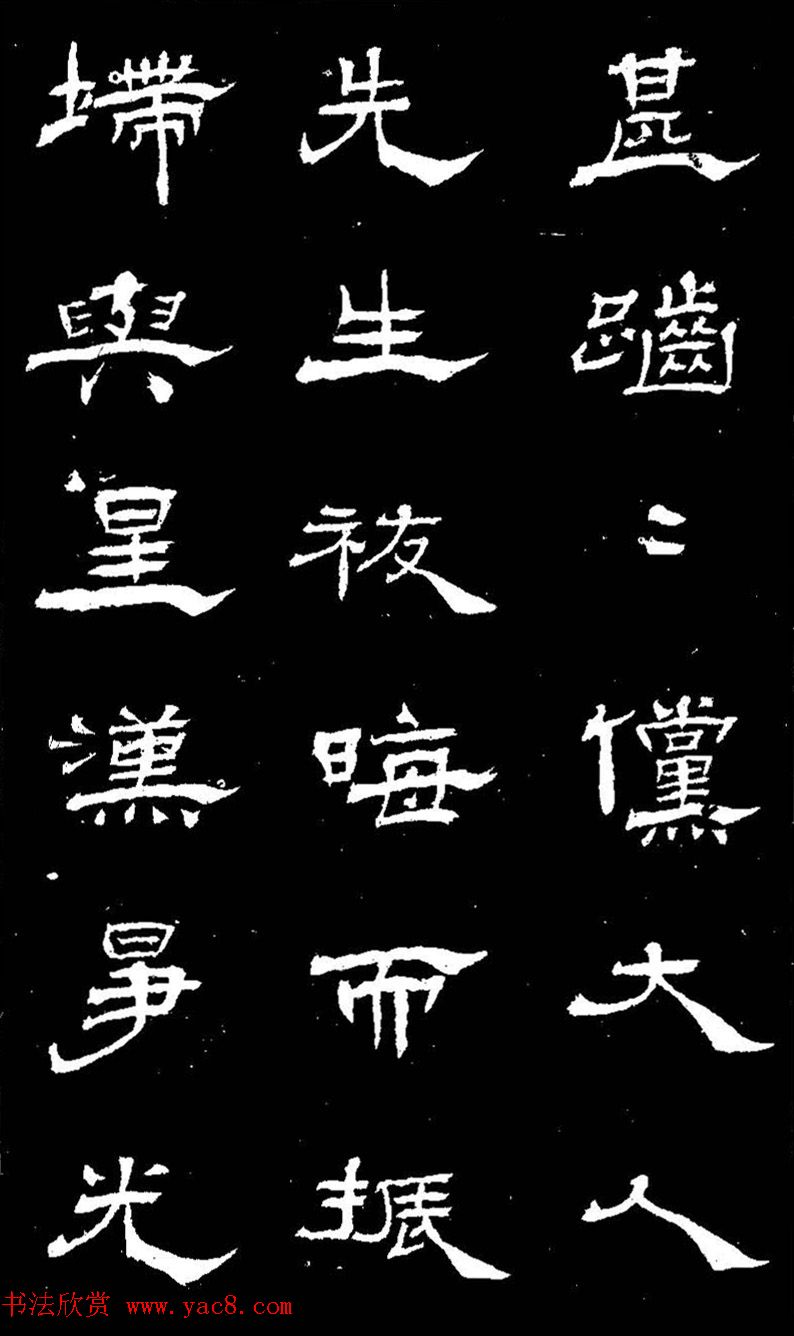 甚〻儻大人
先生祓晦而振
墆與星漢光
书法欣赏 www.yac8.com